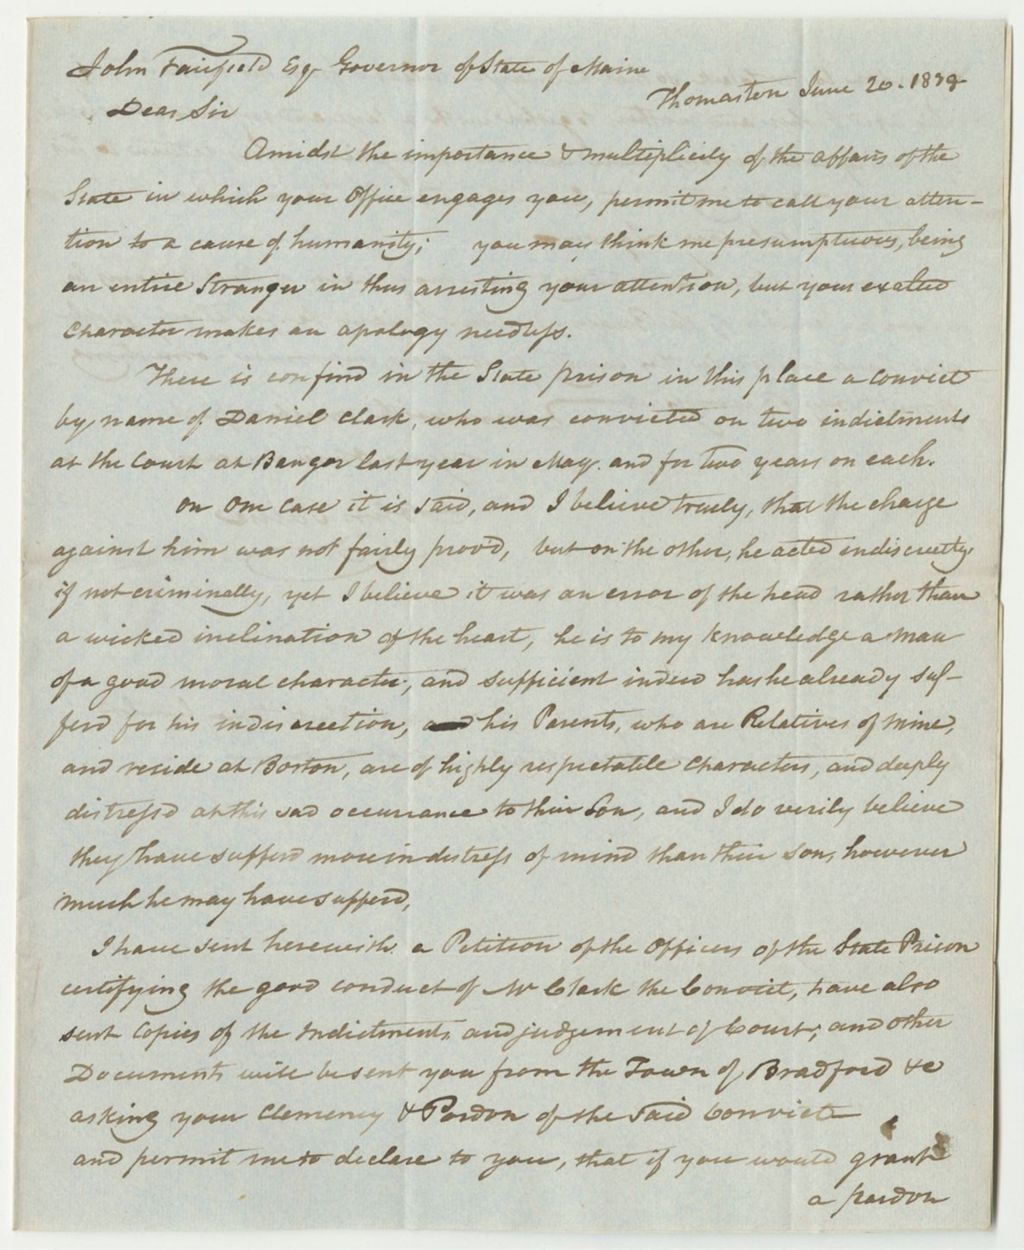 John Fairfield Esqr Governor of State of Maine
Thomaston June 20. 1839
Dear Sir
Amidst the importance & multiplicity of the affairs of the
State in which your Office engages you, permit me to call your atten-
tion to a cause of humanity; you may think me presumptuous, being
an entire Stranger in thus arresting your attention, but your exalted
Character makes an apology needless.
There is confind in the State prison in this place a Convict
by name of Daniel Clark, who was convicted on two indictments
at the Court at Bangor last year in May. and for two years on each.
On One case it is said, and I believe truely, that the charge
against him was not fairly provd, but on the other, he acted indiscreetly
if not criminally, yet I believe it was an error of the head rather than
a wicked inclination of the heart, he is to my knowledge a man
of a good moral character, and sufficient indeed has he already suf-
ferd for his indiscreetion, and his Parents, who are Relatives of mine,
and reside at Boston, are of highly respectable Characters, and deeply
distressd at this sad occurrance to their Son, and I do verily believe
they have sufferd more in distress of mind than their son, however
much he may have sufferd,
I have sent herewith a Petition of the Officers of the State Prison
certifying the good conduct of Mr Clark the Convict, have also
sent Copies of the Indictments and judgement of Court; and other
Documents will be sent you from the Town of Bradford &c
asking your Clemency & Pardon of the Said Convict
and permit me to declare to you, that if you would grant
a pardon